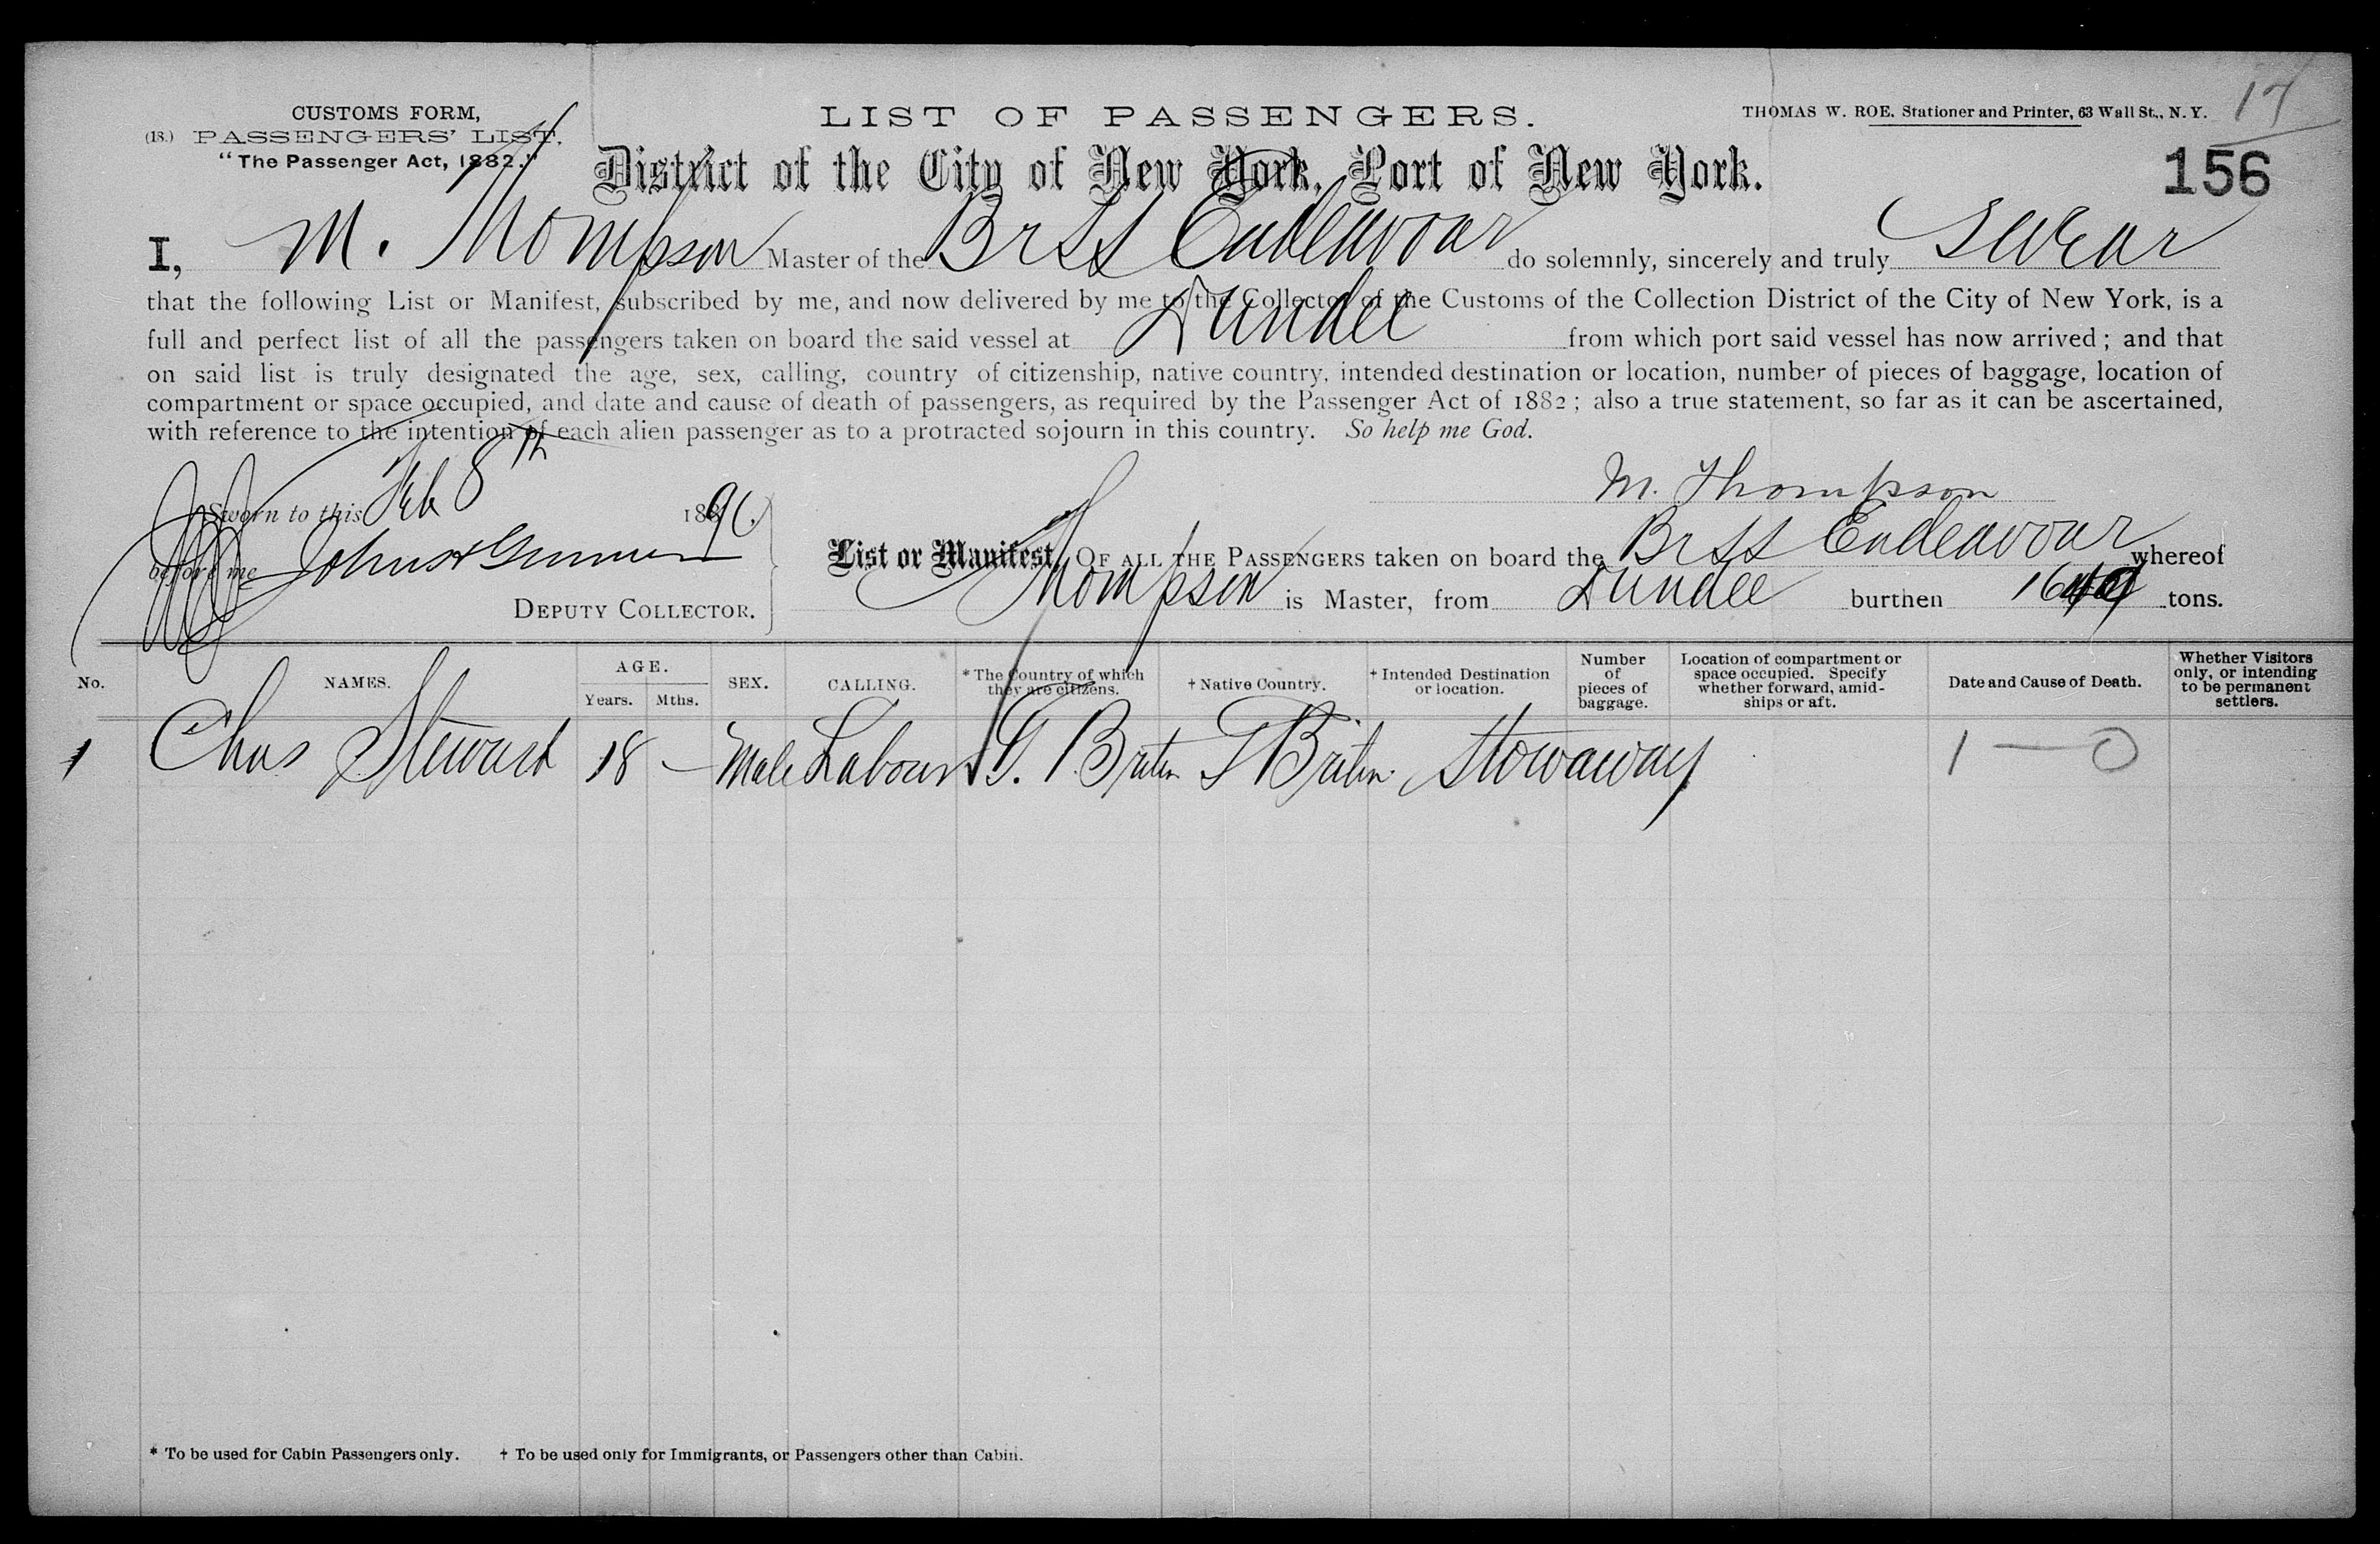 CUSTOMS FORM,
(18.) PASSENGERS' LIST.
"The Passenger Act, 1882."
LIST OF PASSENGERS.
THOMAS W. ROE, Stationer and Printer, 63 Wall St., N. Y.
17
District of the City of New York, Port of New York.
156
I, M. Thompson Master of the Br SS Endeavour do solemnly, sincerely and truly swear
that the following List or Manifest, subscribed by me, and now delivered by me to the Collector of the Customs of the Collection District of the City of New York, is a
full and perfect list of all the passengers taken on board the said vessel at Dundee from which port said vessel has now arrived; and that
on said list is truly designated the age, sex, calling, country of citizenship, native country, intended destination or location, number of pieces of baggage, location of
compartment or space occupied, and date and cause of death of passengers, as required by the Passenger Act of 1882; also a true statement, so far as it can be ascertained,
with reference to the intention of each alien passenger as to a protracted sojourn in this country. So help me God.
M. Thompson
Sworn to this Feb 8th 18
before me
DEPUTY COLLECTOR.
List or Manifest, OF ALL THE PASSENGERS taken on board the Br SS Endeavour whereof
Thompson is Master, from Dundee burthen tons.
No. NAMES. AGE. Years. Mths. SEX. CALLING. * The Country of which they are citizens. † Native Country. † Intended Destination or location. Number of pieces of baggage. Location of compartment or space occupied. Specify whether forward, amidships or aft. Date and Cause of Death. Whether Visitors only, or intending to be permanent settlers.
1 Chas Stewart 18 — Male Labourer G. Britn G Britn Stowaway 1 — 0
* To be used for Cabin Passengers only. † To be used only for Immigrants, or Passengers other than Cabin.